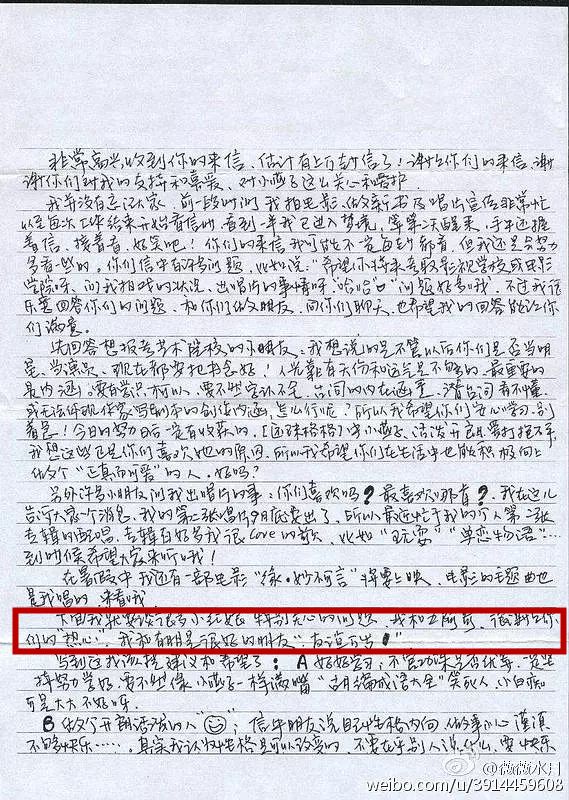 非常高兴收到你们的来信、估计有上万封信了！谢谢你们的来信,谢
谢你们对我的支持和喜爱、对小燕子这么关心和爱护
我并没有忘记大家、前一段时间我拍电影、做新专辑及唱片宣传非常忙
以至每次工作结束开始看信时、看到一半我已进入梦乡,等第二天醒来,手中还握
着信、接着看,好笑吧！你们的来信我可能不一定每封都看,但我还是会努力
多看一些的、你们信中有许多问题、比如说:"希望你将来考取影视学校或电影
学院呀、问我拍戏的状况、出唱片的事情呀"哈哈"问题好多哦"、不过我很
乐意回答你们的问题、和你们做朋友、同你们聊天,也希望我的回答能让你
们满意。
先回答想报考艺术院校的小朋友:我想说的是不管以后你们是否当明
星、当演员、现在都要把书念好！人光靠有天份和运气是不够的、最重要的
是内涵。要有学识才可以、要不然字认不足、台词的内在涵意、潜台词看不懂
或无法体现作家写剧本的创作内涵,怎么行呢？所以我希望你们安心学习、别
着急！今日的努力日后一定有收获的.[还珠格格]中小燕子、活泼开朗,爱打抱不平,
我想这些也是你们喜欢她的原因,所以我希望你们在生活中也能积极向上
做个"正真而可爱"的人。好吗？
另外许多小朋友问我出唱片的事:你们喜欢吗？最喜欢哪首？、我在这儿
告诉大家个消息、我的第二张唱片9月底要出了、所以最近忙于我的个人第二张
专辑的配唱、专辑有好多我很Love的歌、比如"玩耍""单恋物语"……
到时候希望大家来听哦！
在暑假中我还有一部电影"缘,妙不可言"将要上映、电影的主题曲也
是我唱的,来看哦
下面我就要谈很多小朋友特别关心的问题、我和五阿哥、很谢谢你
们的"热心"、我和有朋是很好的朋友"友谊万岁！"
写到这我该提建议和希望了: A 好好学习,不管功课是否优等、一定坚
持努力学好,要不然像小燕子一样满嘴"胡编成语大全"笑死人,小白痴
可是大大不好呀
B 做个开朗活泼的人"";信中朋友说自己性格内向、做事小心谨慎
不够快乐……、其实我认为性格是可以改变的、不要在乎别人说什么、要快乐
@微微水月
weibo.com/u/3914459608